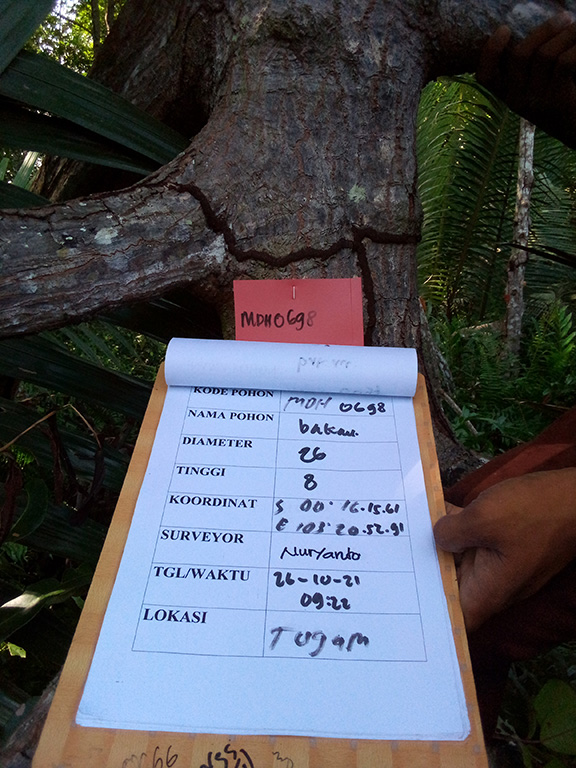 MDH0698
KODE POHON MDH 0698
NAMA POHON bakau.
DIAMETER 26
TINGGI 8
KOORDINAT S 00° 16.15.61
E 103° 20.52.91
SURVEYOR Nuryanto
TGL/WAKTU 26-10-21
09:22
LOKASI TUgaM